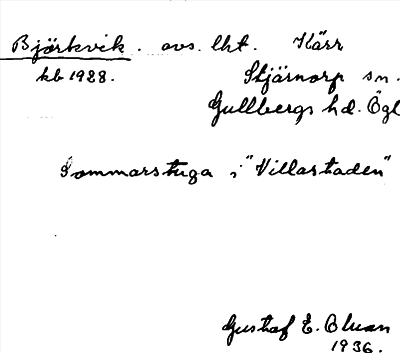 Björkvik. avs. lht. Kärr
kb 1928. Stjärnorp sn.
Gullbergs hd. Ögl
Sommarstuga i "Villastaden"
Gustaf E. Olsson
1936.